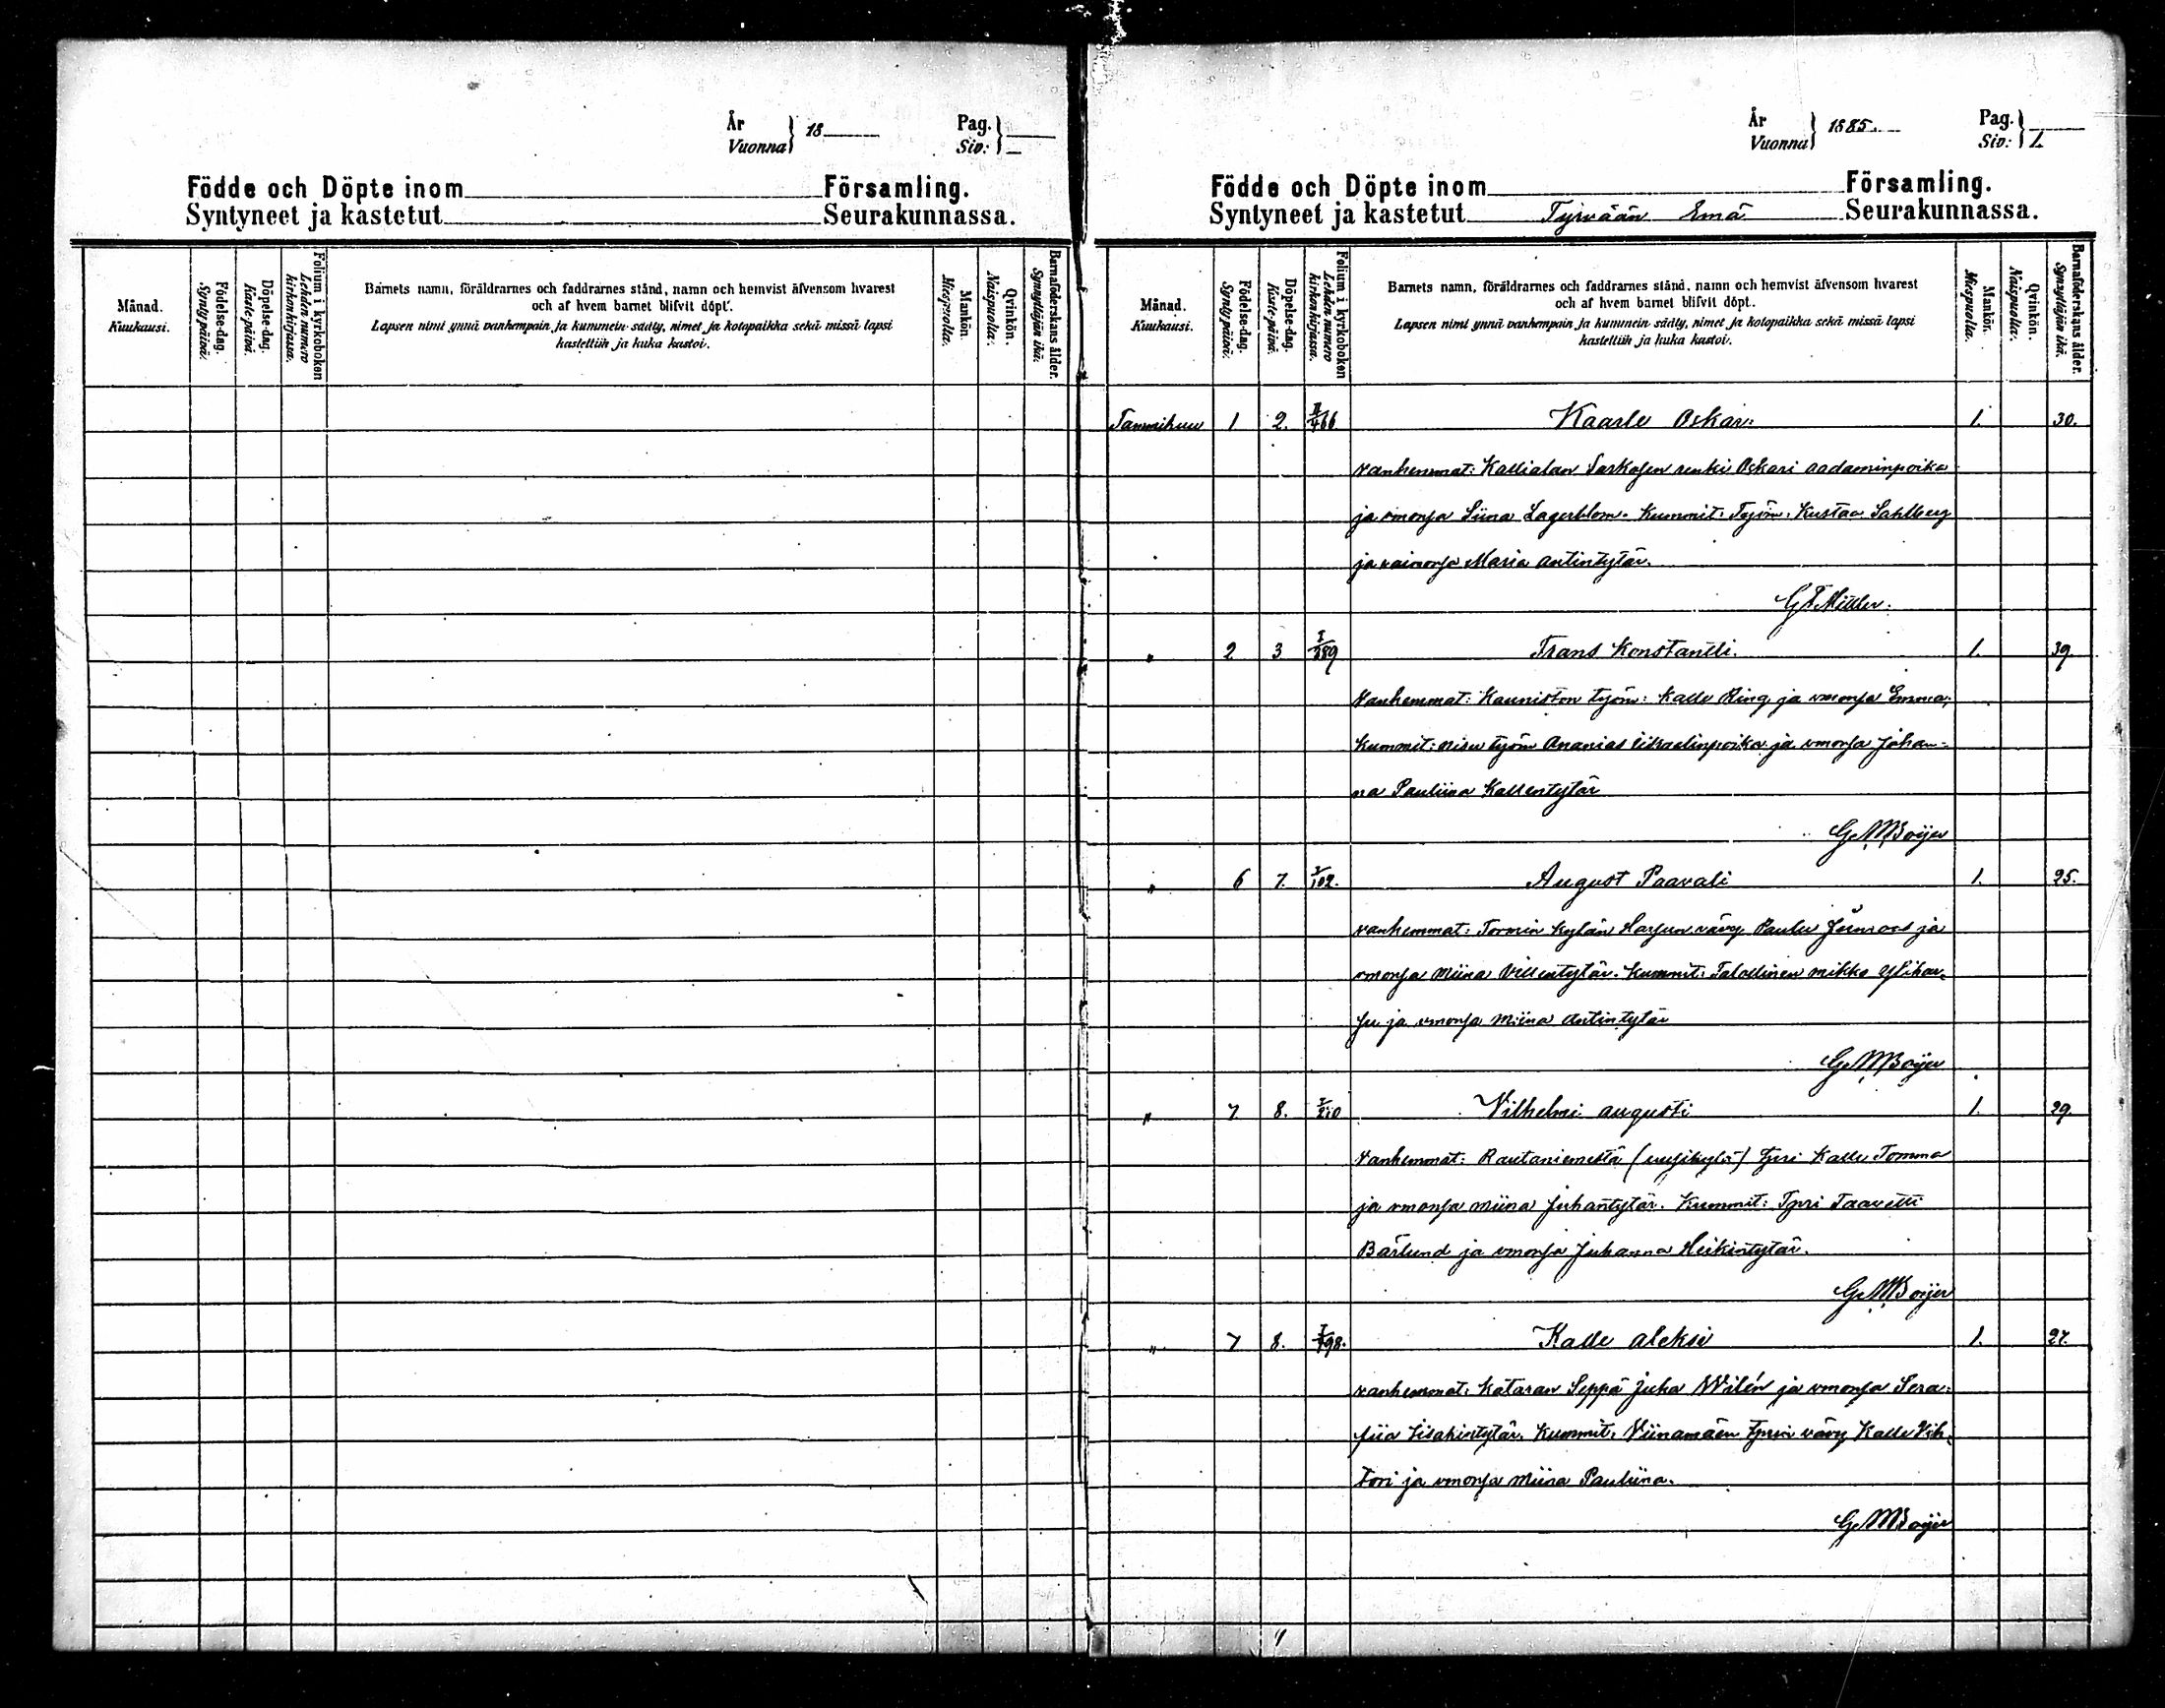 År
Vuonna } 18
Pag.
Siv: }
Födde och Döpte inom Församling.
Syntyneet ja kastetut Seurakunnassa.
Månad.
Kuukausi.
Födelse-dag.
Syntypäivä.
Döpelse-dag.
Kaste-päivä.
Folium i kyrkoboken
Lehden numero
kirkonkirjassa.
Barnets namn, föräldrarnes och faddrarnes stånd, namn och hemvist äfvensom hvarest
och af hvem barnet blifvit döpt.
Lapsen nimi ynnä vanhempain ja kummein sääty, nimet ja kotopaikka sekä missä lapsi
kastettiin ja kuka kastoi.
Mankön.
Miespuolta.
Qvinkön.
Naispuolta.
Barnaföderskans ålder.
Synnyttäjän ikä.
År
Vuonna } 1885.
Pag.
Siv: } 1.
Födde och Döpte inom Församling.
Syntyneet ja kastetut Tyrvään Emä Seurakunnassa.
Månad.
Kuukausi.
Födelse-dag.
Syntypäivä.
Döpelse-dag.
Kaste-päivä.
Folium i kyrkoboken
Lehden numero
kirkonkirjassa.
Barnets namn, föräldrarnes och faddrarnes stånd, namn och hemvist äfvensom hvarest
och af hvem barnet blifvit döpt.
Lapsen nimi ynnä vanhempain ja kummein sääty, nimet ja kotopaikka sekä missä lapsi
kastettiin ja kuka kastoi.
Mankön.
Miespuolta.
Qvinkön.
Naispuolta.
Barnaföderskans ålder.
Synnyttäjän ikä.
Tammikuu 1 2. II/466 Kaarle Oskar. 1. 30.
vanhemmat: Kallialan renki Oskari aadaminpoika
ja vmonsa Siina Lagerblom. Kummit: Työm. Kustaa Sahlberg
ja vaimonsa Maria antintytär.
" 2 3 I/389 Frans Konstantti. 1. 39.
Vanhemmat: Kauniston työm: Kalle Ring ja vmonsa Emma;
Kummit: työm Ananias Iisraelinpoika ja vmonsa Johan-
na Pauliina Kallentytär
G. M Boijer
" 6 7. I/102. August Paavali 1. 25.
vanhemmat: Tormin kylän Harjun vävy Paulu ja
vmonsa Miina Villentytär. Kummit: Talollinen mikko Ylihar-
ju ja vmonsa Miina Antintytär
G. M Boijer
" 7 8. I/210 Vilhelmi augusti 1. 29.
Vanhemmat: Rautaniemestä (uusikylä) tpri Kalle Tomma
ja vmonsa miina Juhantytär. Kummit: Tpri Taavetti
Bärlund ja vmonsa Juhanna Heikintytär.
G. M Boijer
" 7 8. I/498. Kalle aleksi 1. 27.
vanhemmat: Kataran Seppä Juha Wilén ja vmonsa Sera-
fiia Iisakintytär. Kummit: Viinamäen tprin vävy Kalle Vih-
tori ja vmonsa Miina Pauliina.
G. M Boijer